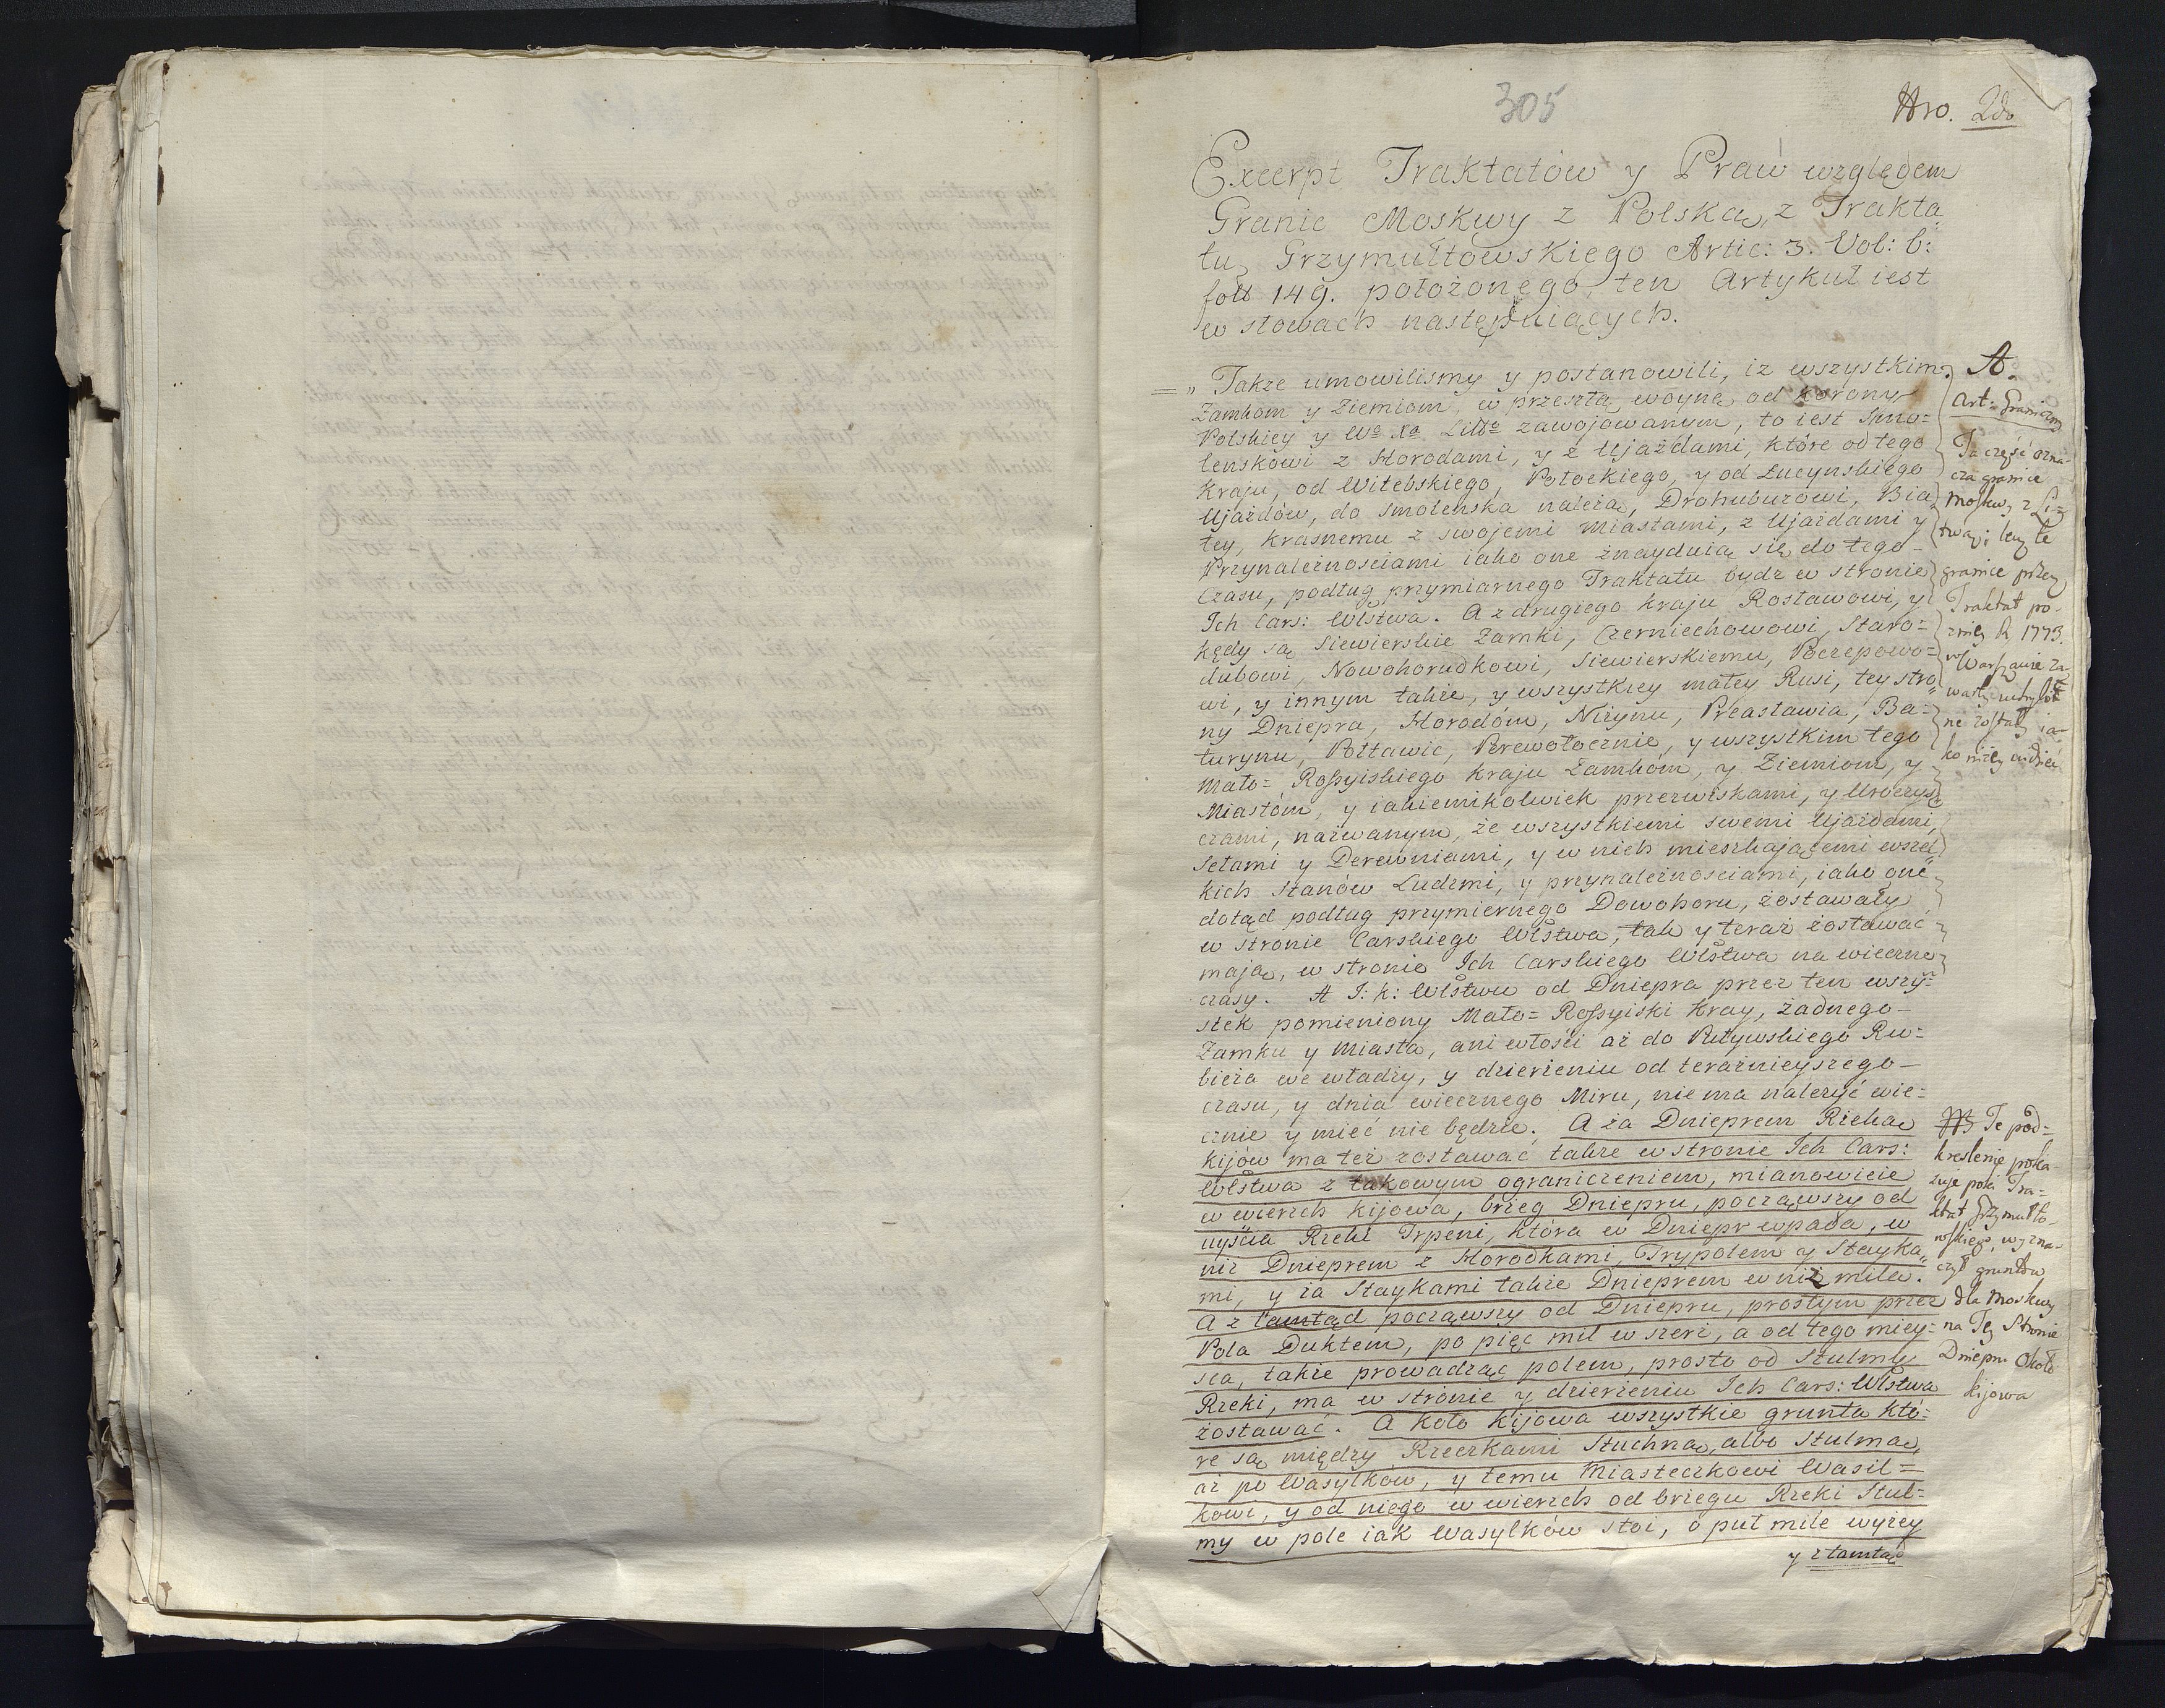 305
Nro. 2do
Excerpt Traktatów y Praw względem
Granic Moskwy z Polską, z Trakta
tu, Grzymułtowskiego Artic: 3. Vol: 6:
foll 149. położonego ten Artykuł iest
w słowach następuiących.
=„ Takze umowilismy y postanowili, iz wszystkim
Zamkom y Ziemiom, w przeszłą woynę od Korony
Polskiey y Wo Xa Litto zawojowanym, to iest Smo=
lenskowi z Horodami, y z Ujazdami, które od tego
Kraju, od Witebskiego, Połockiego, y od Lucynskiego
Ujazdów, do Smolenska należą, Drohubuzowi, Bia
łey, Krasnemu z swojemi Miastami, z Ujazdami y
Przynależnosciami iako one znayduią się do tego-
Czasu, podług przymiarnego Traktatu bydz w stronie
Ich Cars: Wlstwa. A z drugiego Kraju Rosławowi, y
kędy są Siewierskie Zamki, Czerniechowowi, Staro=
dubowi, Nowohorudkowi, Siewierskiemu, Poczepowo=
wi, y innym takze, y wszystkiey małey Rusi, tey stro
ny Dniepra, Horodóm, Niżynu, Preasławia, Ba=
turynu, Połtawie, Perewołocznie, y wszystkim tego
Mało= Rossyiskiego Kraju Zamkóm, y Ziemiom, y
Miastóm, y iakiemikolwiek przezwiskami, y Uroczys=
czami, nazwanym, ze wszystkiemi swemi Ujazdami,
Sełami y Derewniami, y w nich mieszkającemi wszel
kich Stanów Ludzmi, y przynależnosciami, iako one
dotąd podług przymiernego Dowohoru, zostawały
w stronie Carskiego Wlstwa, tak y teraz zostawać
mają, w stronie Ich Carskiego Wlstwa na wieczne
czasy. A J: K: Wlstwu od Dniepra przez ten wszy=
stek pomieniony Mało= Rossyiski Kray, żadnego-
Zamku y Miasta, ani włości aż do Putywskiego Ru=
bieża we władzy, y dzierżeniu od terazneyszego-
czasu, y dnia wiecznego Miru, nie ma należyć wie=
cznie y mieć nie będzie. A za Dnieprem Rzeką
Kijów ma też zostawać takze w stronie Ich Cars:
Wlstwa z takowym ograniczeniem, mianowicie
w wierzch Kijowa, brzeg Dniepru, począwszy od
uyścia Rzeki Irpeni, która w Dniepr wpada, w
niz Dnieprem z Horodkami, Trypolem y Stayka=
mi, y za Staykami takze Dnieprem w niz mila.
A z tamtąd począwszy od Dniepru, prostym przez
Pola Duktem, po pięć mil w szerz, a od tego miey=
sca, takze prowadząc polem, prosto od Stulmy
Rzeki, ma w stronie y dzierzeniu Ich Cars: Wlstwa
zostawać. A koło Kijowa wszystkie grunta któ=
re są między Rzeczkami Stuchną, albo Stulmą,
aż po Wasylków, y temu Miasteczkowi Wasil=
kowi, y od niego w wierzch od brzegu Rzeki Stul=
my w pole iak Wasylków stoi, o puł mile wyzey
y z tamtąd
A.
Art: Graniczny
Ta część ozna-
cza granice
Moskwy z Li=
twą; lecz te
granice przez
Traktat po-
zniey R 1773.
w Warszawie za
ne zostały ia-
ko niżey widzieć
NB Te pod=
kreslenie poka-
zuje poki Tra=
ktat Grzymułto-
wskiego, wyzna-
czył gruntów
dla Moskwy
na Tey Stronie
Dniepru Około
Kijowa